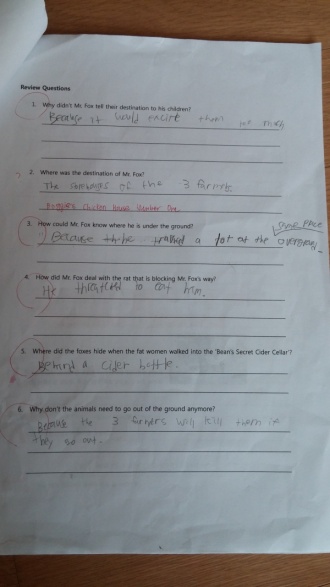 Review Questions
1. Why didn't Mr. Fox tell their destination to his children?
Because it would excite them too much
2. Where was the destination of Mr. Fox?
The of the 3 farmers
Chicken House Number One
3. How could Mr. Fox know where he is under the ground?
Because he a lot at the
4. How did Mr. Fox deal with the rat that is blocking Mr. Fox's way?
He to eat him.
5. Where did the foxes hide when the fat women walked into the 'Bean's Secret Cider Cellar'?
Behind a cider bottle.
6. Why don't the animals need to go out of the ground anymore?
Because the 3 farmers will kill them if
they go out.